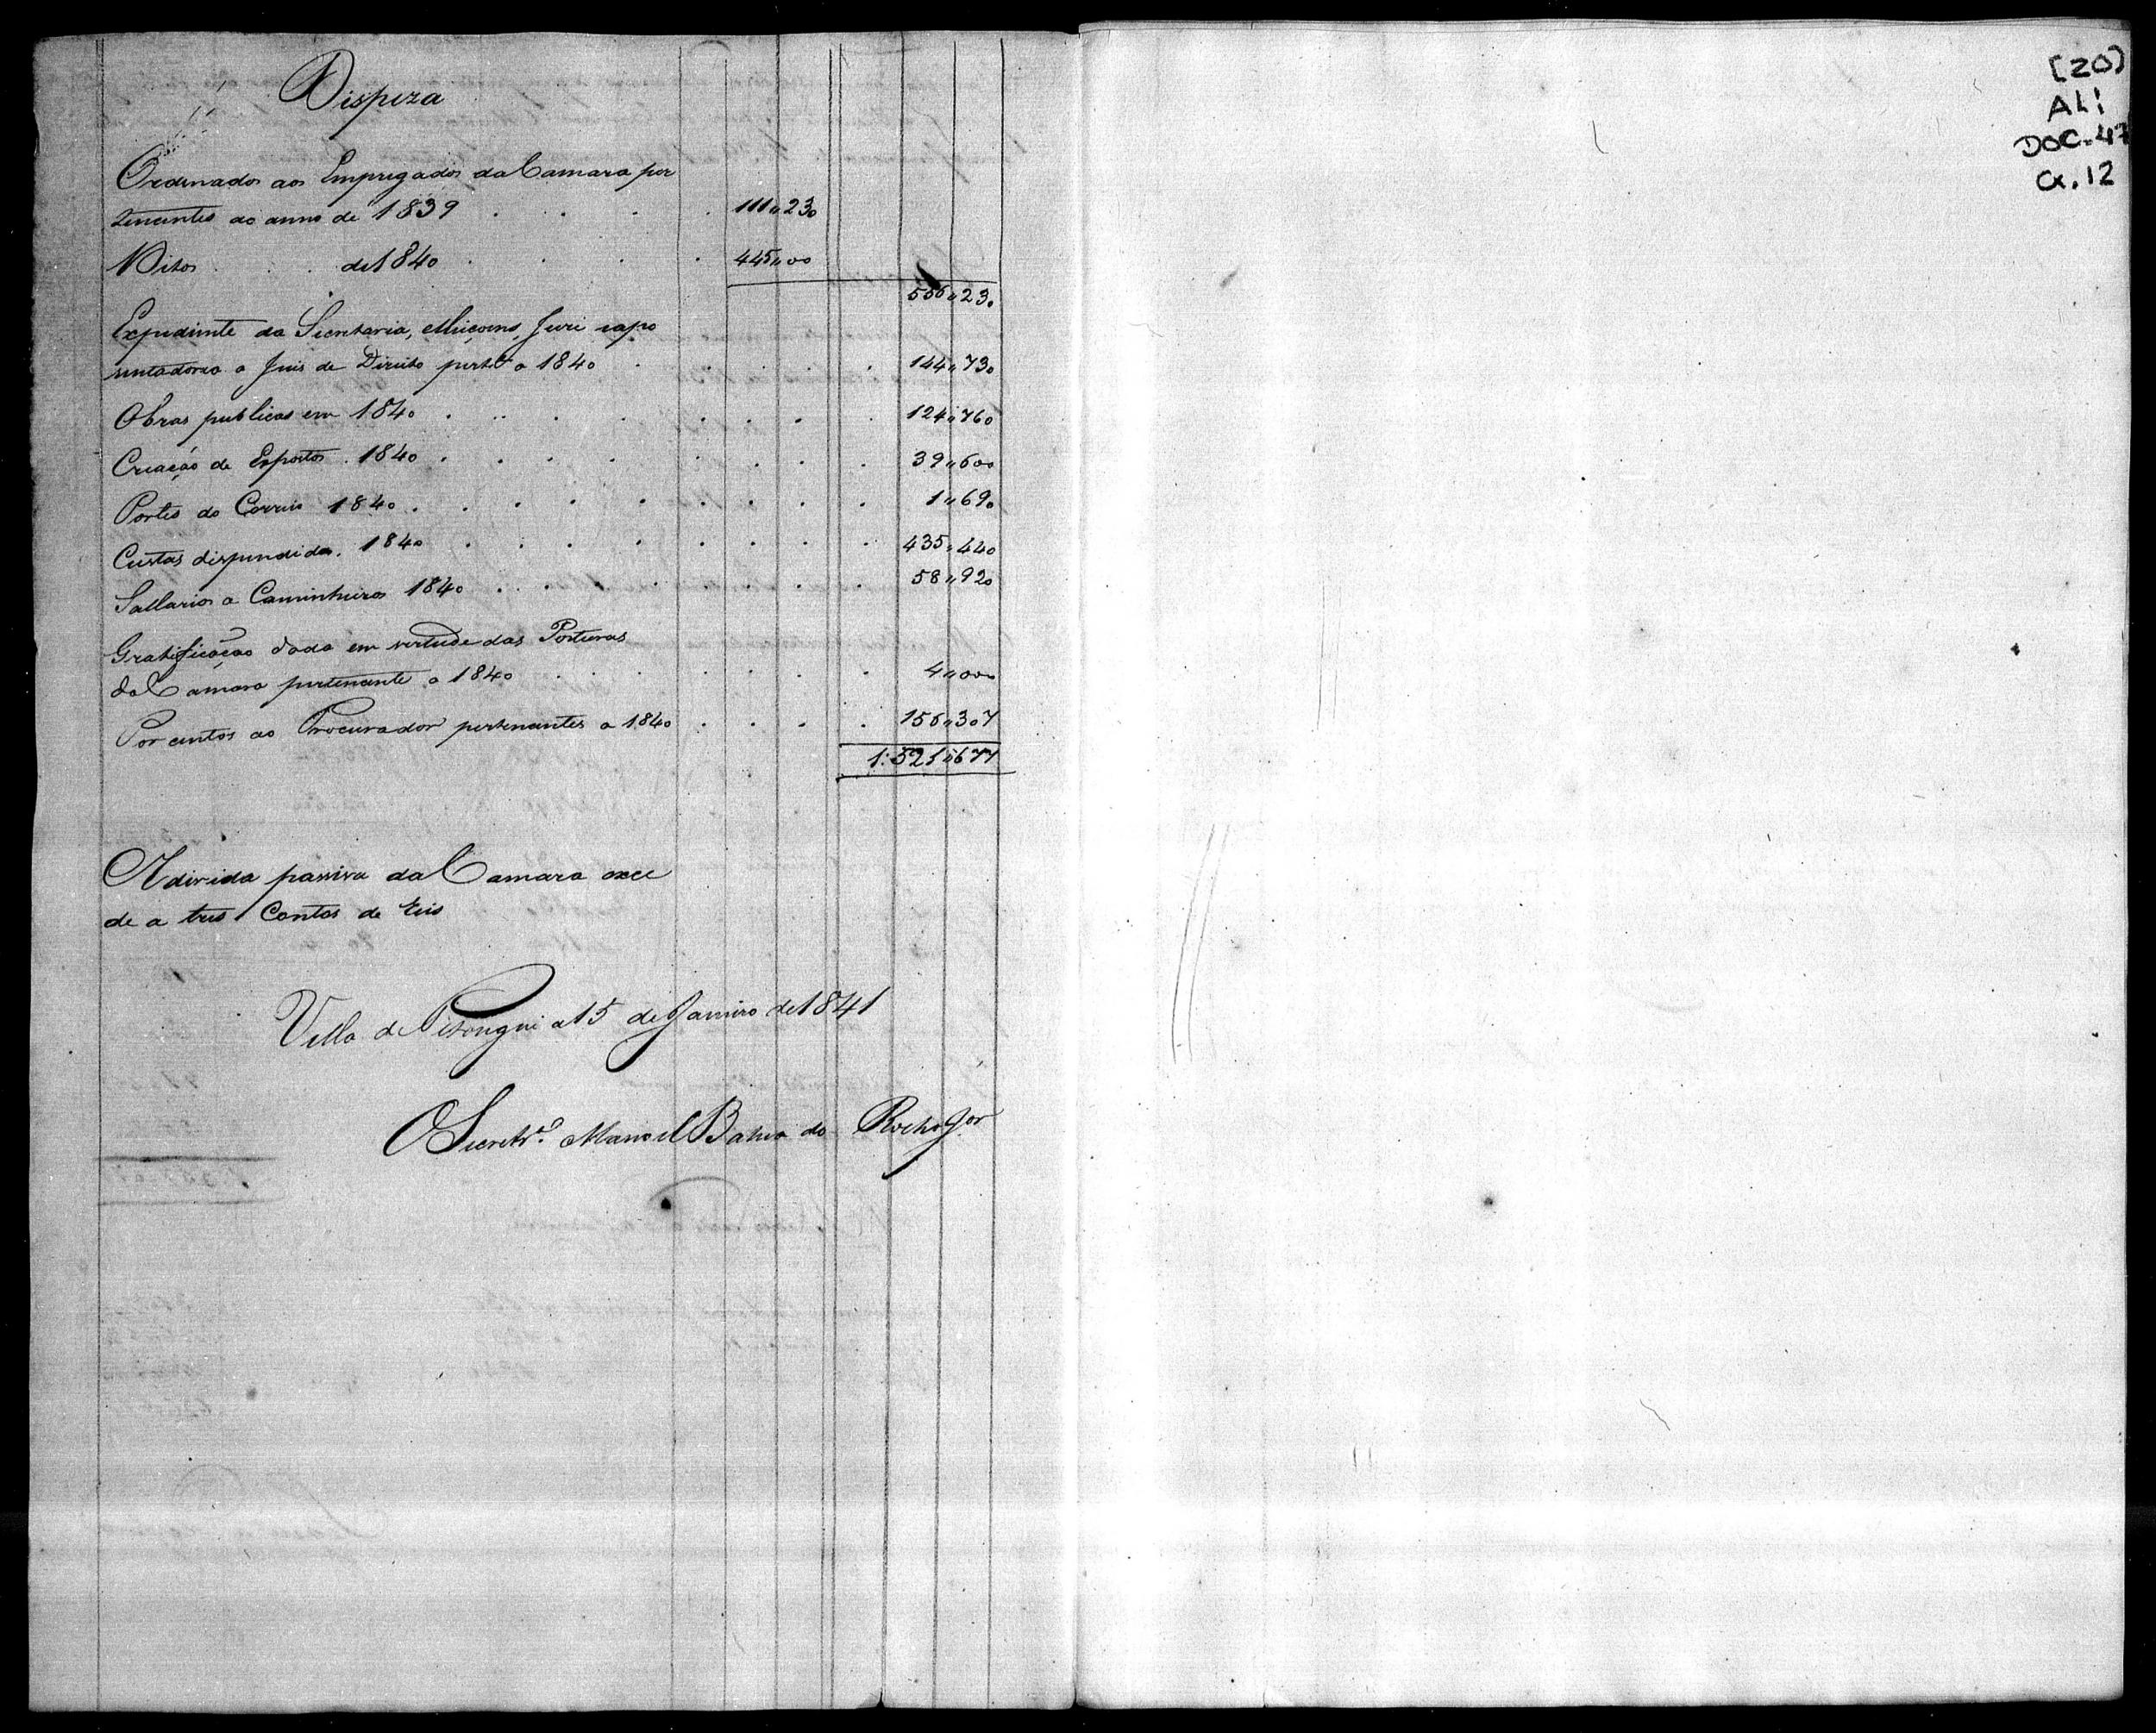 Dispeza
Ordenados aos Empregados da Camara per
tencentes ao anno de 1839 . . . . 111„230
Ditos . . . de 1840 . . . . 445„00
556„230
Expediente da Secretaria, Eleiçoens, Juri e apo
sentadoria a Juis de Direito pertte a 1840 . . . . 144„730
Obras publicas em 1840 . . . . . . . . 124„760
Criação de Expostos . 1840 . . . . . . . . 39„600
Portes do Correio 1840 . . . . . . . . 1„690
Custas dispendidas . 1840 . . . . . . . 435„440
Sallarios a Caminheiros 1840 . . . . . . . 58„920
Gratificação dada em virtude das Posturas
da Camara pertencente a 1840 . . . . . . 4„000
Por centos ao Procurador pertencentes a 1840 . . . . 156„307
1:521„677
A divida passiva da Camara exce
de a tres Contos de reis
Villa de Pitangui a 15 de Janeiro de 1841
O Secretr.º Manoel Bahia da Rocha Jor
(20)
ALI
DOC. 47
CX. 12